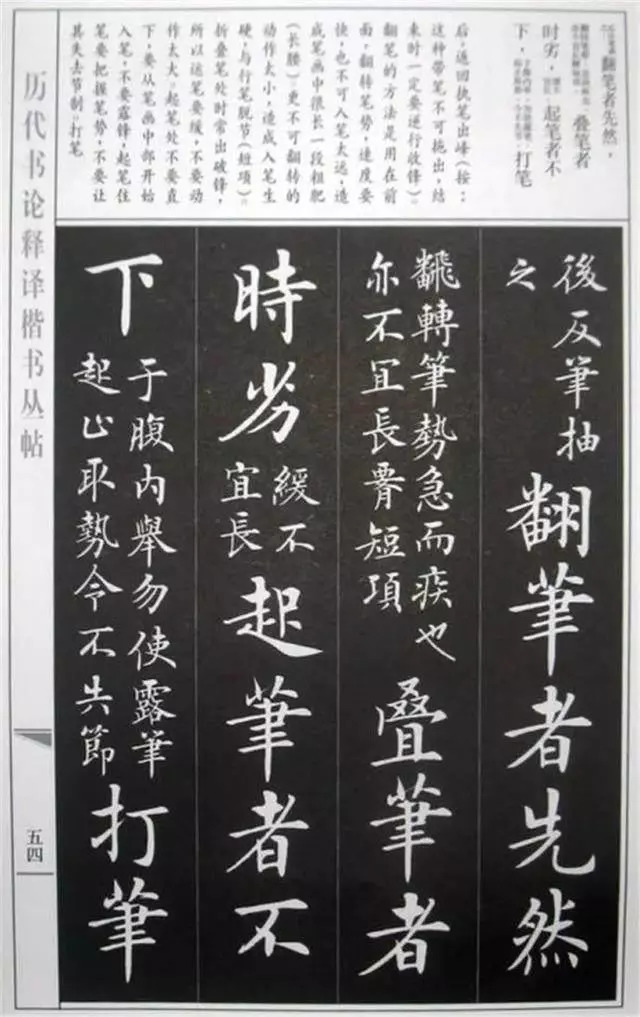 翻笔者先然，
叠笔者
时劣，
起笔者不
下，
打笔
后，返回执笔出峰（按：
这种带笔不可拖出，结
来时一定要进行收锋）。
翻笔的方法是用在前
面，翻转笔势，速度要
快，也不可入笔太远，造
成笔画中很长一段粗肥
（长腰）。更不可翻转的
动作太小，造成入笔生
硬，与行笔脱节（短项）。
折叠笔处时常出破锋，
所以运笔要缓，不要动
作太大。起笔处不要直
下，要从笔画中部开始
入笔，不要露锋，起笔住
笔要把握笔势，不要让
其失去节制。打笔
後反筆抽
之
翻筆者先然
飜轉筆勢急而疾也
亦不宜長脣短項
叠筆者
時劣
緩不
宜長
起筆者不
下
于腹内舉勿使露筆
起止取勢令不失節
打筆
历代书论释译楷书丛帖
五四